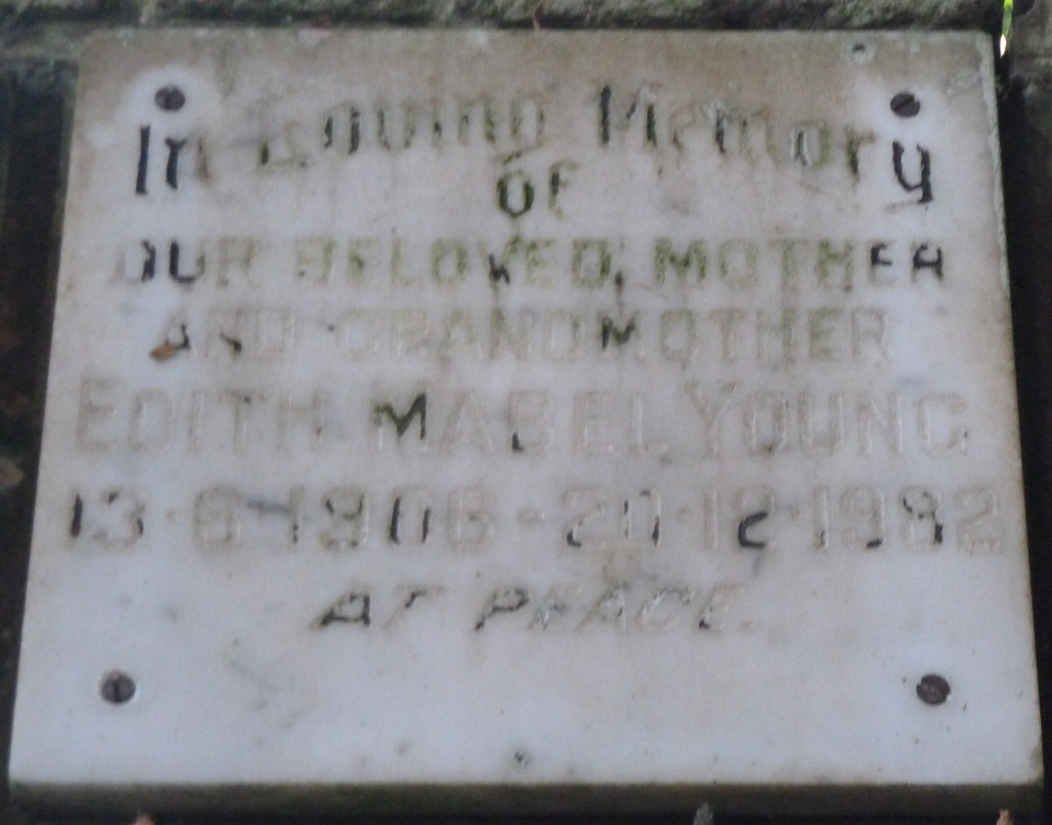 In Loving Memory
Of
OUR BELOVED MOTHER
AND GRANDMOTHER
EDITH MABEL YOUNG
13·6·1906 - 20·12·1982
AT PEACE.